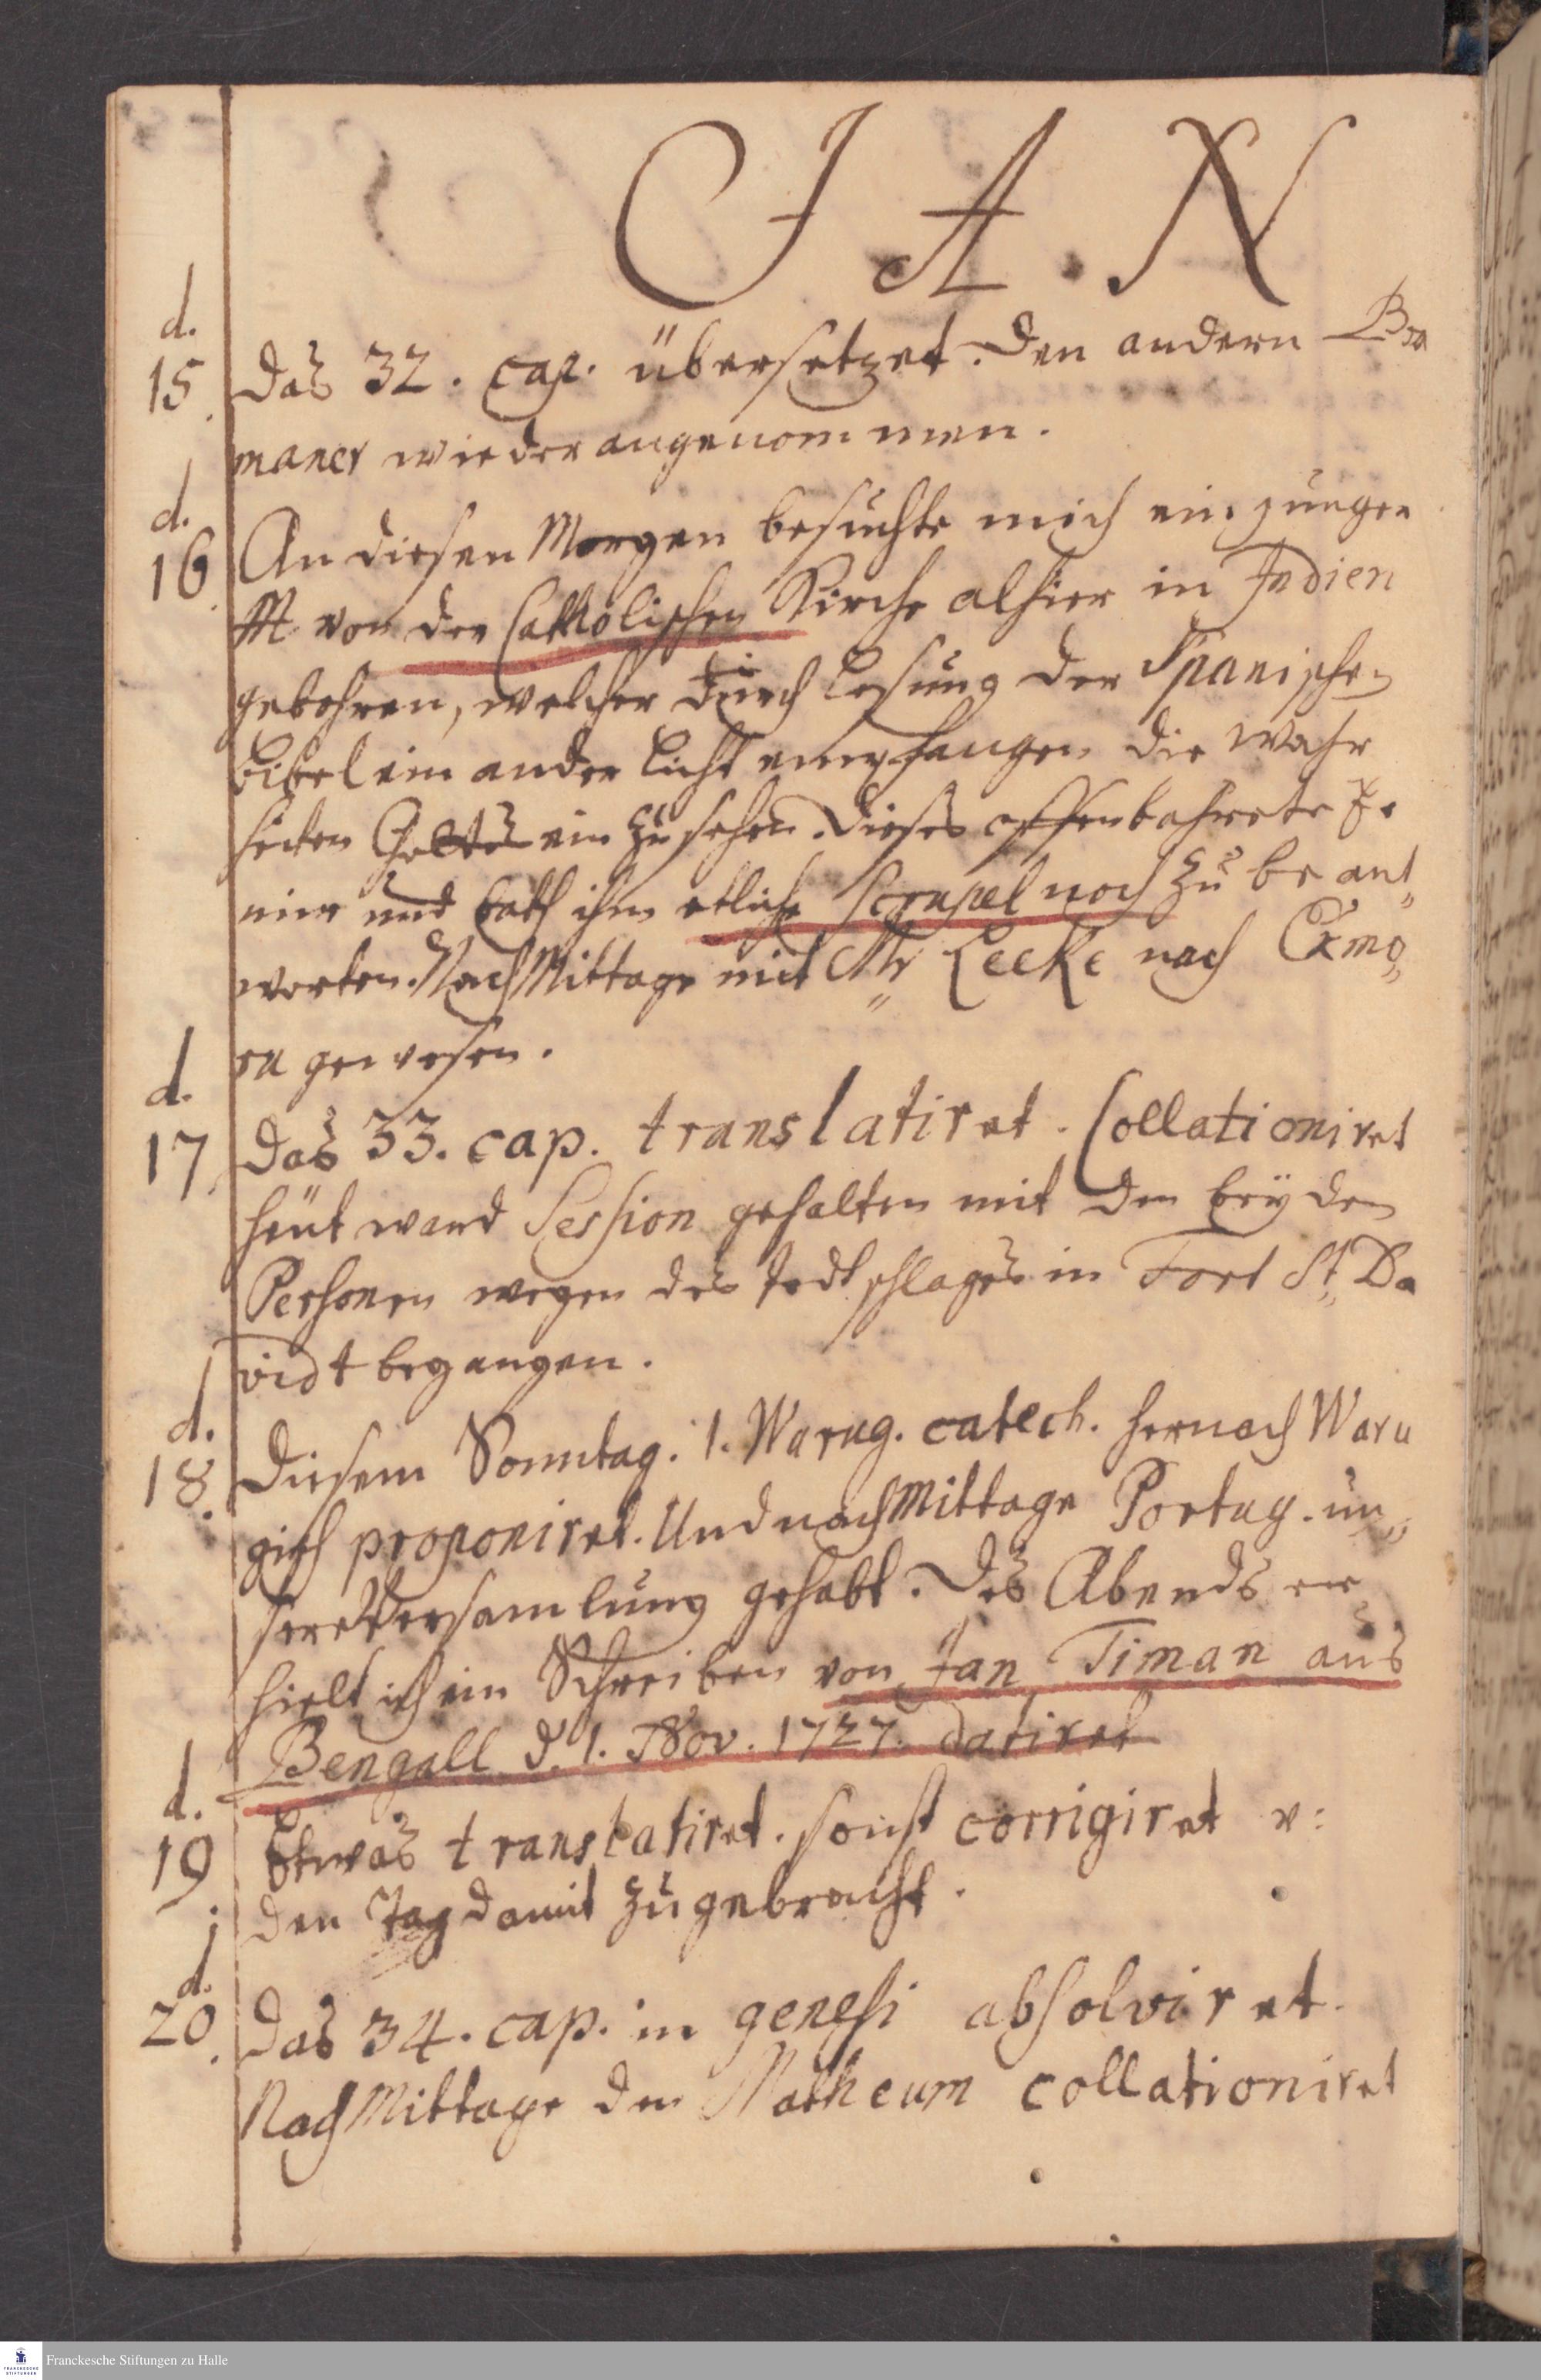 J A. N
d.
15. Das 32. cap. übersetzet. Den andern Bra
maner wieder angenommen.
d.
16. An diesen Morgen besuchte mich ein junger
M von der Catholischen Kirche alhier in Indien
gebohren, welcher durch Lesung der Spanischen
Bibel ein ander Licht empfangen die Wahr
heiten Gottes ein zu sehen. Dieses offenbahrete Er
mir und bath ihm etliche Scrupel noch zu be ant„
worten. Nach Mittage mit Mr Leeke nach
gewesen.
d.
17. Das 33. cap. translatiret. Collationiret
heüt ward Session gehalten mit den beÿden
Personen wegen des Todtschlages in Fort St. Da
vidt begangen.
d.
18. Diesem Sonntag. 1. Warug. catech. hernach Waru
gisch proponiret. Und nach Mittage Portug. un„
sere Versamlung gehabt. Des Abends er
hielt ich ein Schreiben von Jan Timan aus
Bengall d. 1. Nov. 1727. datiret
d.
19. Etwas translatiret. sonst corrigiret u:
den Tag damit zugebracht.
d.
20. Das 34. cap. in genesi absolviret.
Nach Mittage den Matheum collationiret
Franckesche Stiftungen zu Halle